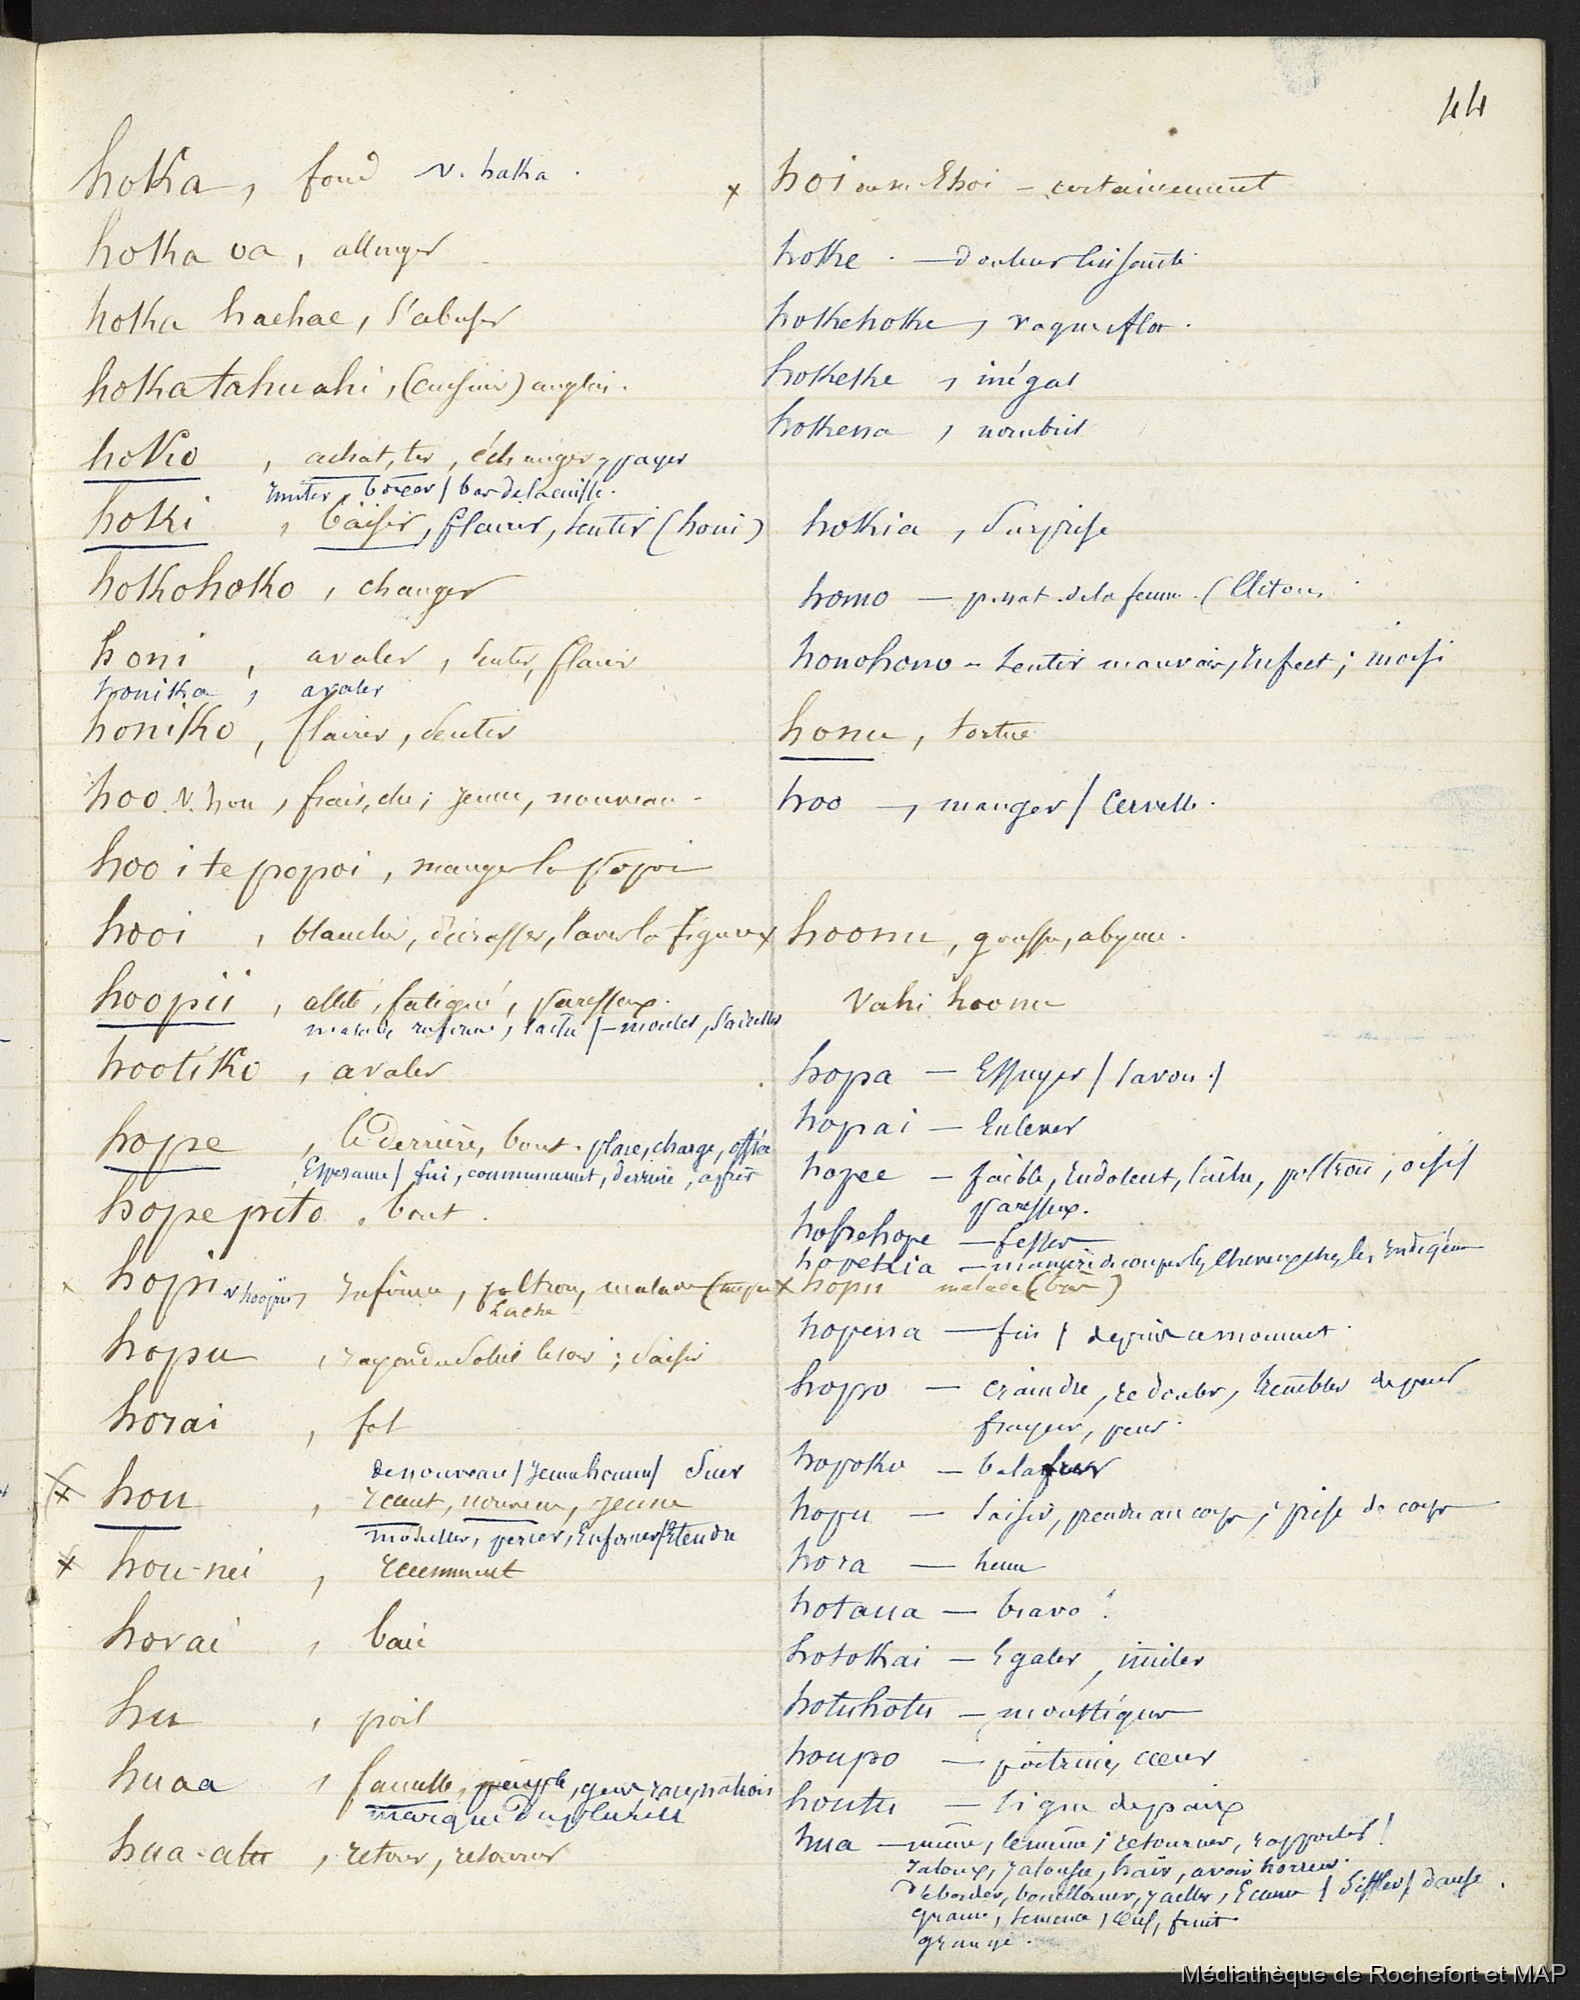 44
hoka, fond v. haka.
hoka va, allonger
hoka haehae, s'abuser
hokatahuahi, (cuisine) anglais.
hoko, achat, ter, échanger, payer
imiter, bercer / bas de la cuisse.
hoki, baiser, flairer, sentir (honi)
hokohoko, changer
honi, avaler, sentir, flairer
honika, avaler
honiko, flairer, sentir
hoo v. hou, frais, che; jeune, nouveau
hoo i te popoi, manger la popoi
hooi, blanchir, décrasser, laver la figure
hoopii, alité, fatigué, paresseux.
malade, infirme, lache / mouler,
hootiko, avaler
hope, le derrière, bout. place, charge, office
Esperance / fin, communement, derrière, après
hope pito, bout.
hopi v hoopii, infirme, poltron, malade
Lache
hopu, rayon du Soleil le soir; saisir
horai, fat
de nouveau / jeune homme / Suer
hou, récent, nouveau, jeune
modeller, percer, Enfoncer / Etendre
hou-nei, récemment
hovai, baie
hu, poil
huaa, famille, peuple, gens race, nation
marque du pluriel
hua-atu, retour, retourner
x hoi ou Ehoi - certainement
hoke - douleur
hokehoke, vague, flot.
hokeke, inégal
hokena, nombril
hokia, Surprise
homo - de la femme (Clitoris
honohono - sentir mauvais, Infect; moisi
honu, tortue
hoo -, manger / Cervelle.
x hoonu, gouffre, abyme.
Vahi hoonu
hopa - Essuyer / savon /
hopai - Enlever
hopee - faible, Indolent, lâche, poltron; oisif
paresseux.
hopehope - fesser
hopekia - manière de couper les cheveux chez les Indigènes
x hopii malade
hopena - fin / depuis ce moment.
hopo - craindre, redouter, trembler de peur
frayeur, peur.
hopoko - balafrer
hopu - Saisir, prendre au corps; prise de corps
hora - heure
hotaua - bravo!
hotokai - Egaler, imiter
hotuhotu - moustique
houpo - poitrine, cœur
houtu - Signe de paix
hua - même, le même; retourner, rapporter /
Jaloux, jalousie, haïr, avoir horreur.
Déborder, bouillonner, jaillir, Ecume / Siffler / danse.
graine, semence, œuf, fruit
grange.
Médiathèque de Rochefort et MAP